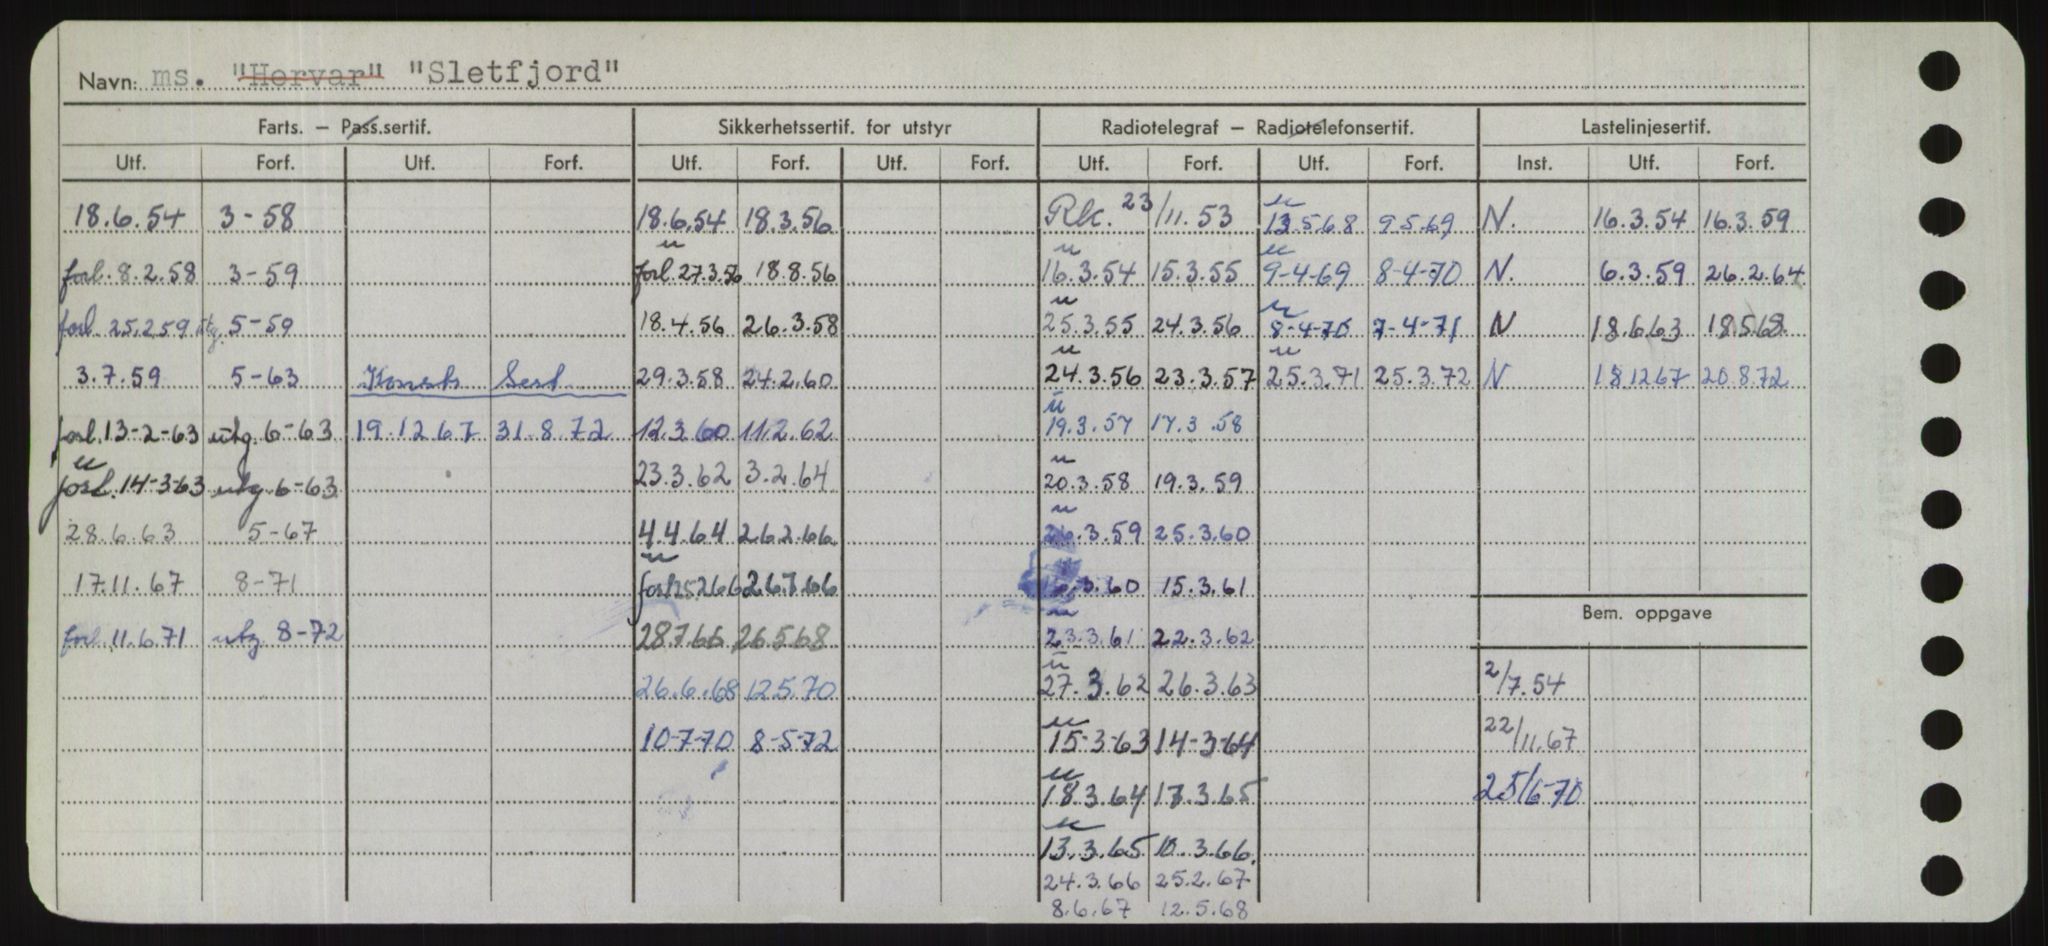 Navn: ms. "Horvar" "Sletfjord"
Farts. – Pass.sertif. Sikkerhetssertif. for utstyr Radiotelegraf – Radiotelefonsertif. Lastelinjesertif.
Utf. Forf. Utf. Forf. Utf. Forf. Utf. Forf. Utf. Forf. Utf. Forf. Inst. Utf. Forf.
18.6.54 3-58 18.6.54 18.3.56 Rk. 23/11.53 u 13.5.68 9.5.69 N. 16.3.54 16.3.59
forl. 8.2.58 3-59 u forl. 27.3.56 18.8.56 u 16.3.54 15.3.55 u 9-4-69 8-4-70 N. 6.3.59 26.2.64
forl. 25.2.59 utg. 5-59 18.4.56 26.3.58 u 25.3.55 24.3.56 u 8-4-70 7-4-71 N 18.6.63 18.5.68.
3.7.59 5-63 Konstr. Sert. 29.3.58 24.2.60 u 24.3.56 23.3.57 u 25.3.71 25.3.72 N 18.12.67 20.8.72
forl. 13-2-63 utg. 6-63 19.12.67 31.8.72 12.3.60 11.2.62 u 19.3.57 17.3.58
u forl. 14-3-63 utg 6-63 23.3.62 3.2.64 u 20.3.58 19.3.59
28.6.63 5-67 4.4.64 26.2.66 u 26.3.59 25.3.60
17.11.67 8-71 u forl. 25.2.66 26.7.66 .3.60 15.3.61
Bem. oppgave
forl. 11.6.71 utg. 8-72 28.7.66 26.5.68 u 23.3.61 22.3.62
26.6.68 12.5.70 u 27.3.62 26.3.63 2/7.54
10-7-70 8-5-72 u 15-3-63 14-3-64 22/11.67
u 18.3.64 17.3.65 25/6-70
u 13.3.65 10.3.66.
24.3.66 25.2.67
8.6.67 12.5.68